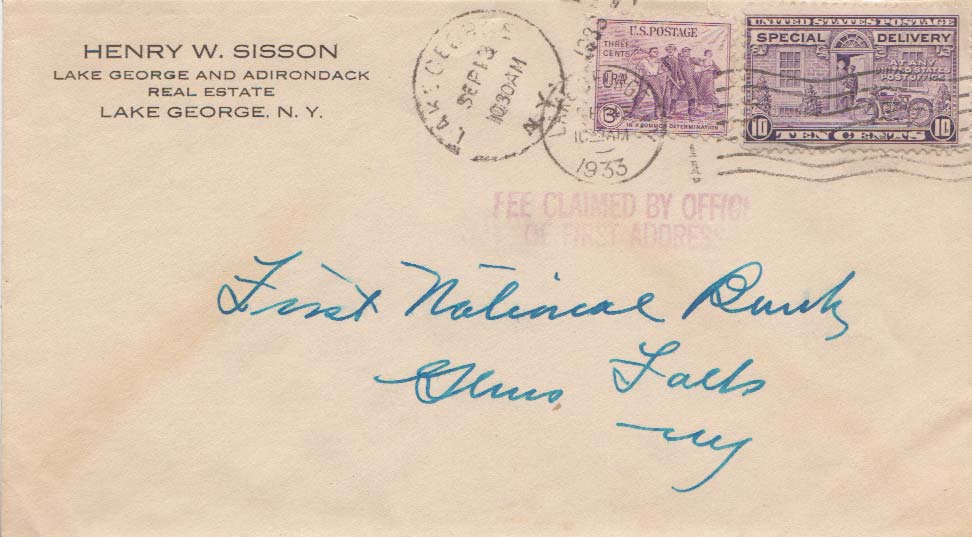 HENRY W. SISSON
LAKE GEORGE AND ADIRONDACK
REAL ESTATE
LAKE GEORGE, N. Y.
LAKE GEORGE
SEP 13
1030AM
N.Y.
1933
U.S. POSTAGE
THREE
CENTS
NRA
3¢
IN A COMMON DETERMINATION
UNITED STATES POSTAGE
SPECIAL DELIVERY
AT ANY
UNITED STATES
POST OFFICE
10 TEN CENTS 10
FEE CLAIMED BY OFFICE
OF FIRST ADDRESS
First National Bank
Glens Falls
NY